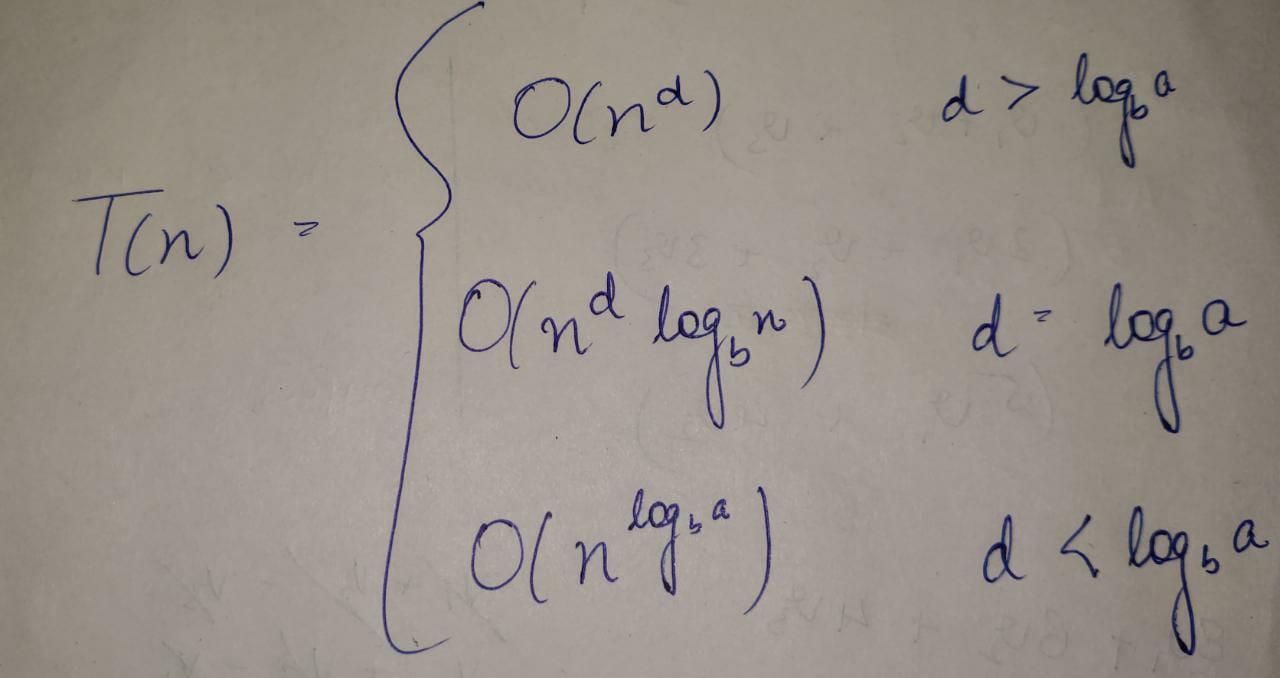 T(n) = { O(n^d) d > log_b a
O(n^d log_b n) d = log_b a
O(n^{log_b a}) d < log_b a